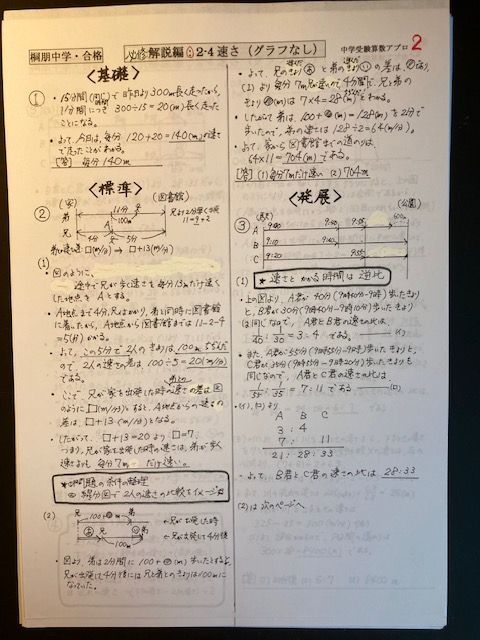 桐朋中学・合格
必修解説編 2-4 速さ（グラフなし）
中学受験算数アプロ
2
＜基礎＞
①
・15分間(同じ)で昨日より300m長く走ったから、
1分間につき 300÷15=20(m)長く走った
ことになる。
・よって、今日は、毎分 120+20=140(m)の速さ
で走ったことがわかる。
[答] 毎分140m
＜標準＞
②
(家) (図書館)
11分
弟
兄
A
4分 5分
兄より2分早く出発
11-9=2
□(m/分) → □+13(m/分)
(1)
・図のように、
途中で兄が歩く速さを毎分13mだけ速くし
た地点を Aとする。
・A地点まで4分、兄はかかり、弟と同時に図書館
に着いたから、A地点から図書館までは 11-2-4
=5(分)かかる。
・よって、この5分で2人のきょりは100m
ので、2人の速さの差は 100÷5=20(m/分)
である。
・ここで、兄が家を出発した時の速さの差は図
のように□(m/分)とすると、A地点からの速さの
差は、□+13(m/分)となる。
・したがって、□+13=20より □=7。
つまり、兄が家を出発した時の速さは、弟が歩く
速さよりも 毎分7mだけ速い。
★問題の条件の整理
線分図で2人の速さの比較をイメージ
(2)
兄 100+ m 弟
兄が出発した時
兄が出発して4分後
100m
・図より、弟は2分間に 100+ (m) 歩いたとすると、
兄が出発して4分後には兄と弟とのきょりは100mに
なっていた。
・よって、兄の と弟の の差は
(2)より毎分7m 4分間で、兄と弟の
(m)は 7×4=28(m) とわかる。
・したがって弟は、100+ =128(m)を2分で
歩いたので、弟の速さは 128÷2=64(m/分)。
・よって、家から図書館までの道のりは、
64×11=704(m)である。
[答] (1)毎分7mだけ速い (2)704m
＜発展＞
③
(公園)
A 9:00 9:40 9:55 600m
B 9:10 9:40
C 9:20 9:55
(1)
★ 速さとかかる時間は逆比
・上の図より、A君が40分(9時40分-9時)歩いたきょり
と、B君が30分(9時40分-9時10分)歩いたきょり
は同じなので、A君とB君の速さの比は、
1/40 : 1/30 = 3:4 である (イ)
・また、A君が55分(9時55分-9時)歩いたきょりと、
C君が35分(9時55分-9時20分)歩いたきょりも
同じなので、A君とC君の速さの比は
1/55 : 1/35 = 7:11 である (ロ)
・(イ)、(ロ)より
A B C
3 : 4
7 : 11
21 : 28 : 33
・よって、B君とC君の速さの比は 28:33
(2)は次のページへ